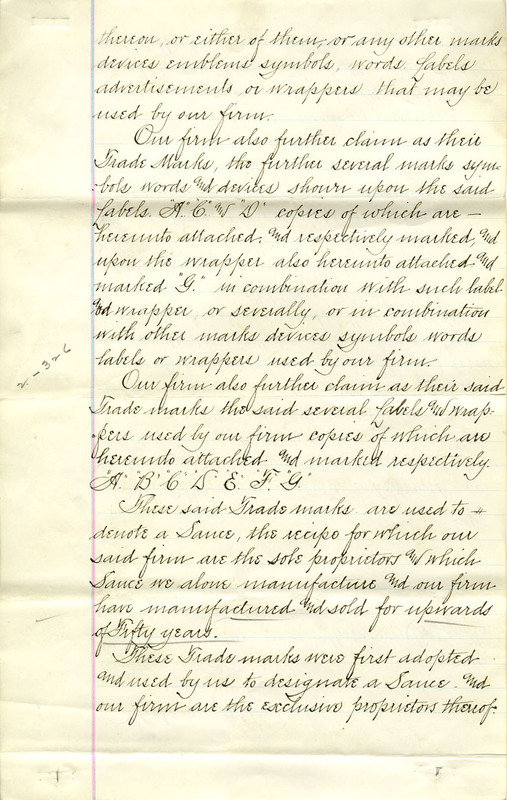 thereon, or either of them, or any other marks
devices emblems symbols, words labels
advertisements or wrappers that may be
used by our firm.
Our firm also further claim as their
Trade Marks, the further several marks sym-
-bols words and devices shown upon the said
labels. "A" "C" and "D" copies of which are —
hereunto attached. and respectively marked, and
upon the wrapper also hereunto attached and
marked "G." in combination with such label
and wrapper, or severally, or in combination
with other marks devices symbols words
labels or wrappers used by our firm.
2-3-26
Our firm also further claim as their said
Trade marks the said several labels and wrap-
-pers used by our firm copies of which are
hereunto attached and marked respectively.
"A" "B" "C" "D" "E" "F" "G"
These said Trade marks are used to
denote a Sauce, the recipe for which our
said firm are the sole proprietors and which
Sauce we alone manufacture and our firm
have manufactured and sold for upwards
of Fifty years.
These Trade marks were first adopted
and used by us to designate a Sauce. and
our firm are the exclusive proprietors thereof.